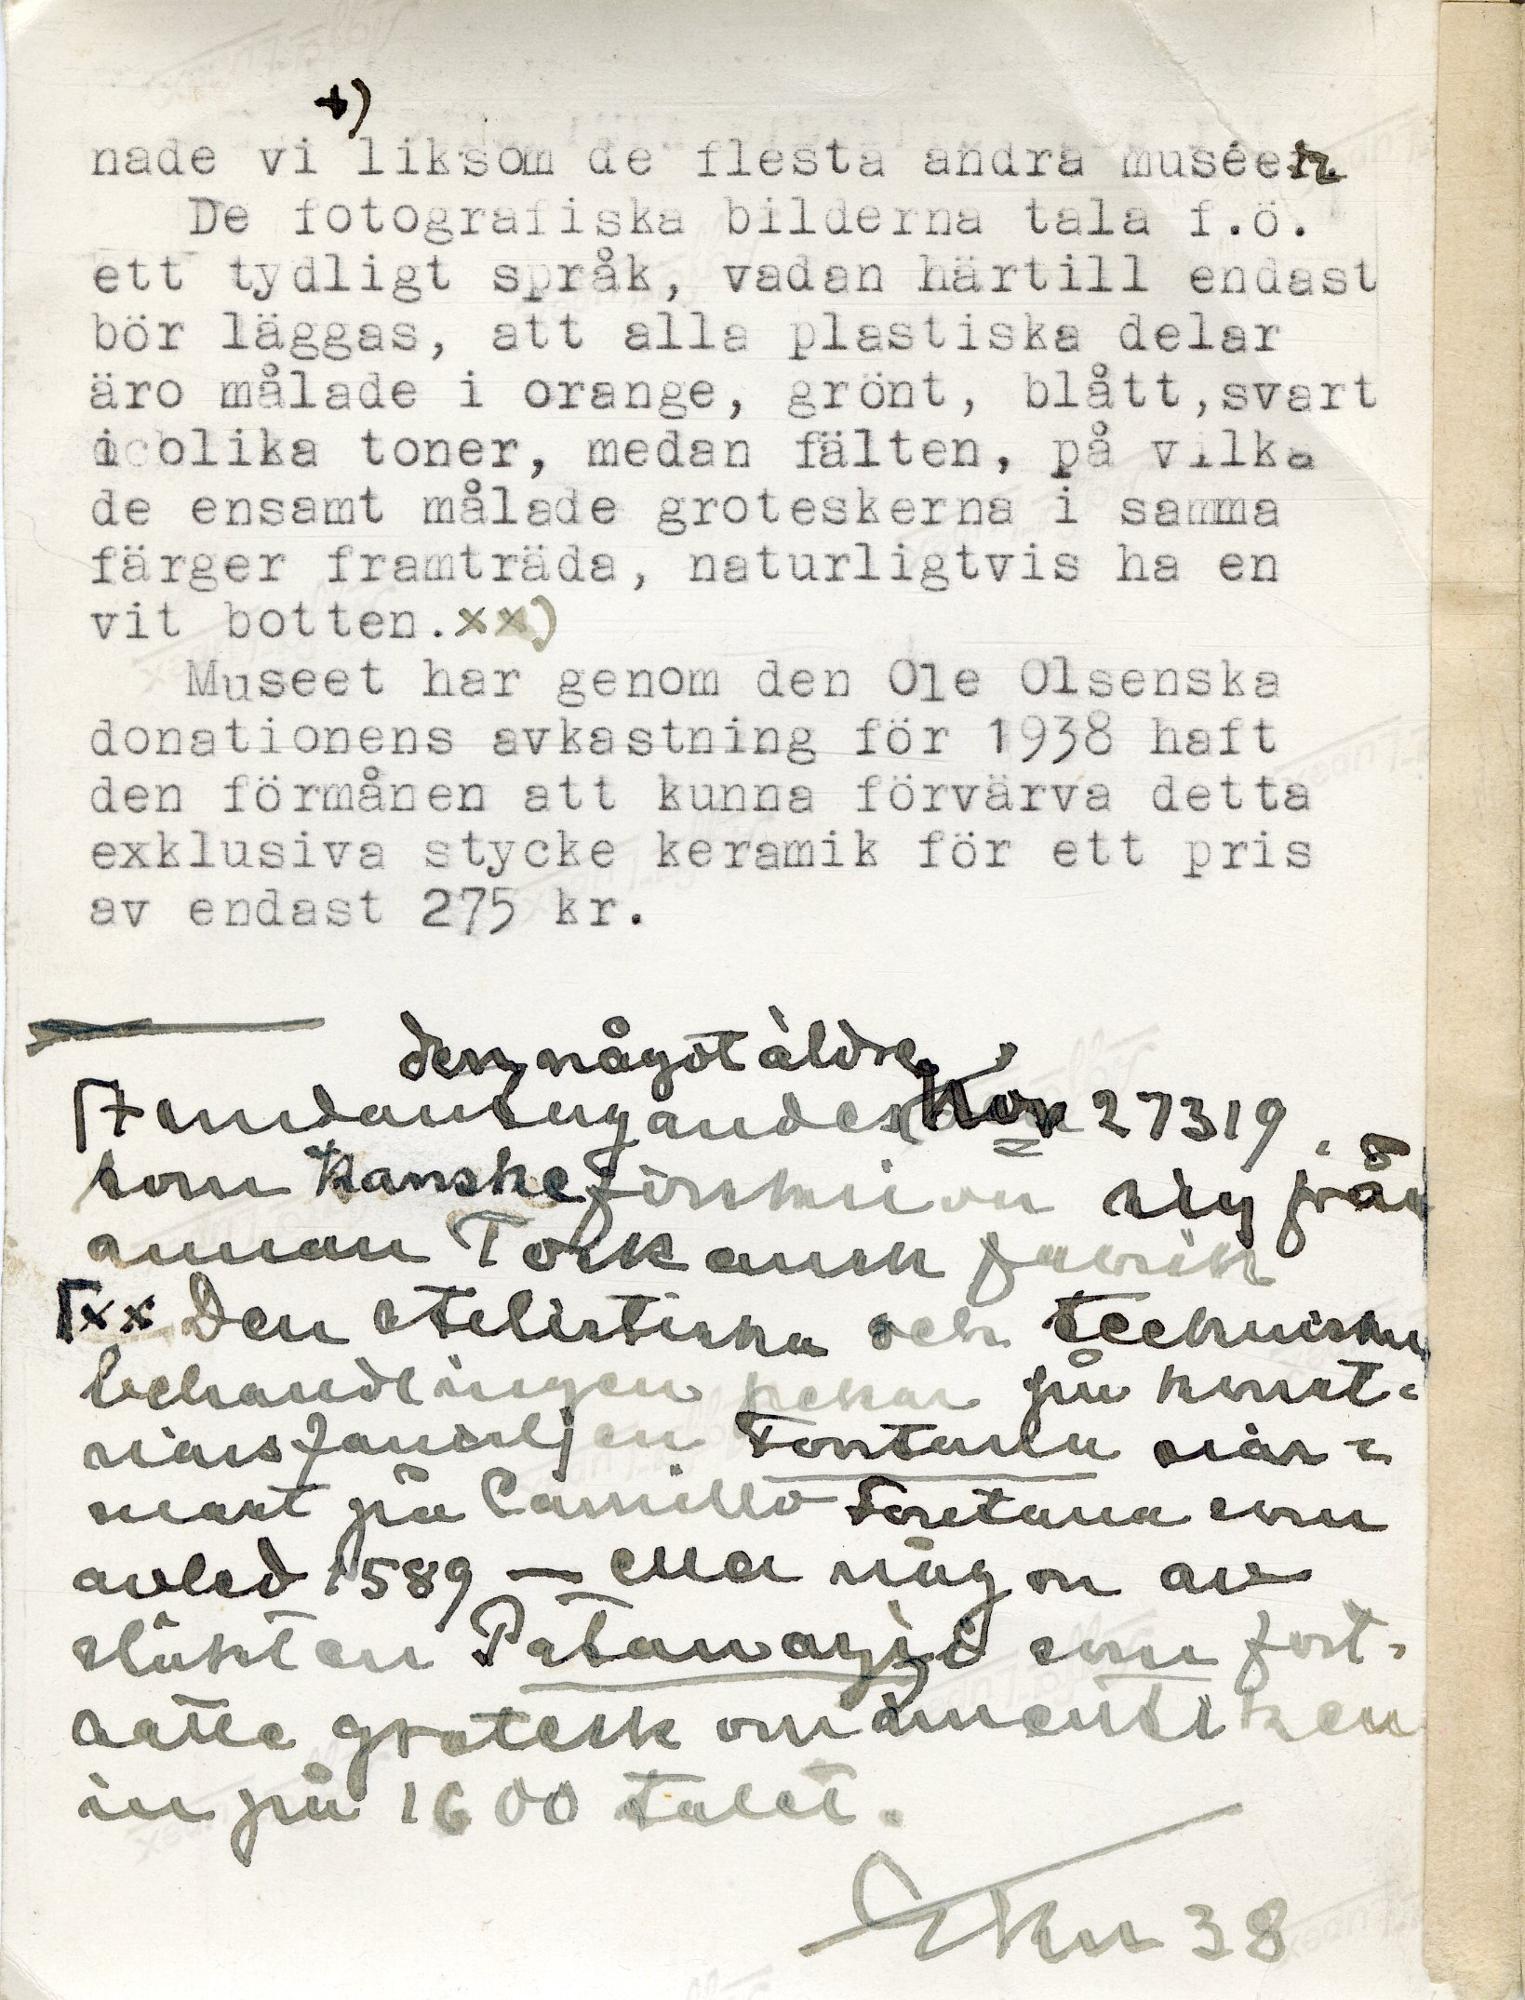 +)
nade vi liksom de flesta andra muséer.
De fotografiska bilderna tala f.ö.
ett tydligt språk, vadan härtill endast
bör läggas, att alla plastiska delar
äro målade i orange, grönt, blått,svart
i olika toner, medan fälten, på vilka
de ensamt målade groteskerna i samma
färger framträda, naturligtvis ha en
vit botten.xx)
Museet har genom den Ole Olsenska
donationens avkastning för 1938 haft
den förmånen att kunna förvärva detta
exklusiva stycke keramik för ett pris
av endast 275 kr.
den något äldre
+ undantagandes 27319
som kanske förskriver sig från
annan Toskansk fabrik
xx Den stelistiska och techniska
behandlingen pekar på konst-
närsfamiljen Fontana när-
mast på Camillo Fontana som
avled 1589 — eller någon av
släkten Patanazzi som fort-
satte grotesk ornamentiken
in på 1600 talet.
38